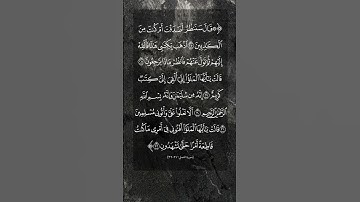 ﴿۞ قَالَ سَنَنظُرُ أَصَدَقْتَ أَمْ كُنتَ مِنَ
ٱلْكَٰذِبِينَ ۝ ٱذْهَب بِّكِتَٰبِى هَٰذَا فَأَلْقِهْ
إِلَيْهِمْ ثُمَّ تَوَلَّ عَنْهُمْ فَٱنظُرْ مَاذَا يَرْجِعُونَ ۝
قَالَتْ يَٰٓأَيُّهَا ٱلْمَلَؤُا۟ إِنِّىٓ أُلْقِىَ إِلَىَّ كِتَٰبٌ
كَرِيمٌ ۝ إِنَّهُۥ مِن سُلَيْمَٰنَ وَإِنَّهُۥ بِسْمِ ٱللَّهِ
ٱلرَّحْمَٰنِ ٱلرَّحِيمِ ۝ أَلَّا تَعْلُوا۟ عَلَىَّ وَأْتُونِى مُسْلِمِينَ
۝ قَالَتْ يَٰٓأَيُّهَا ٱلْمَلَؤُا۟ أَفْتُونِى فِىٓ أَمْرِى مَا كُنتُ
قَاطِعَةً أَمْرًا حَتَّىٰ تَشْهَدُونِ ۝﴾